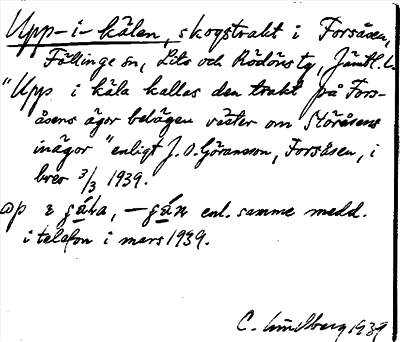 Upp-i-kälen, skogstrakt i Forsåsen,
Föllinge sn, Lits och Rödöns tg, Jämtl. L.
"Upp i käla kallas den trakt på Fors-
åsens ägor belägen väster om Storåsens
inägor" enligt J.O. Göransson, Forsåsen, i
brev 3/3 1939.
enl. samme medd.
i telefon i mars 1939.
C. Lindberg 1939